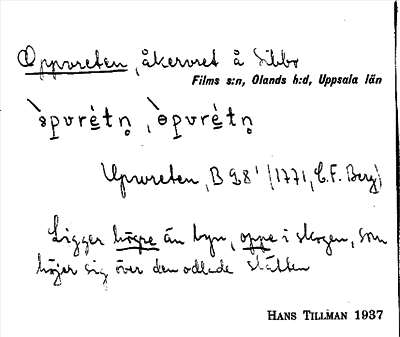 Oppvreten, åkervret å Sibbo
Films s:n, Olands h:d, Uppsala län
Upvreten, B 28¹ (1771, C.F. Berg)
Ligger högre än byn, oppe i skogen, som
höjer sig över den odlade slätten
HANS TILLMAN 1937